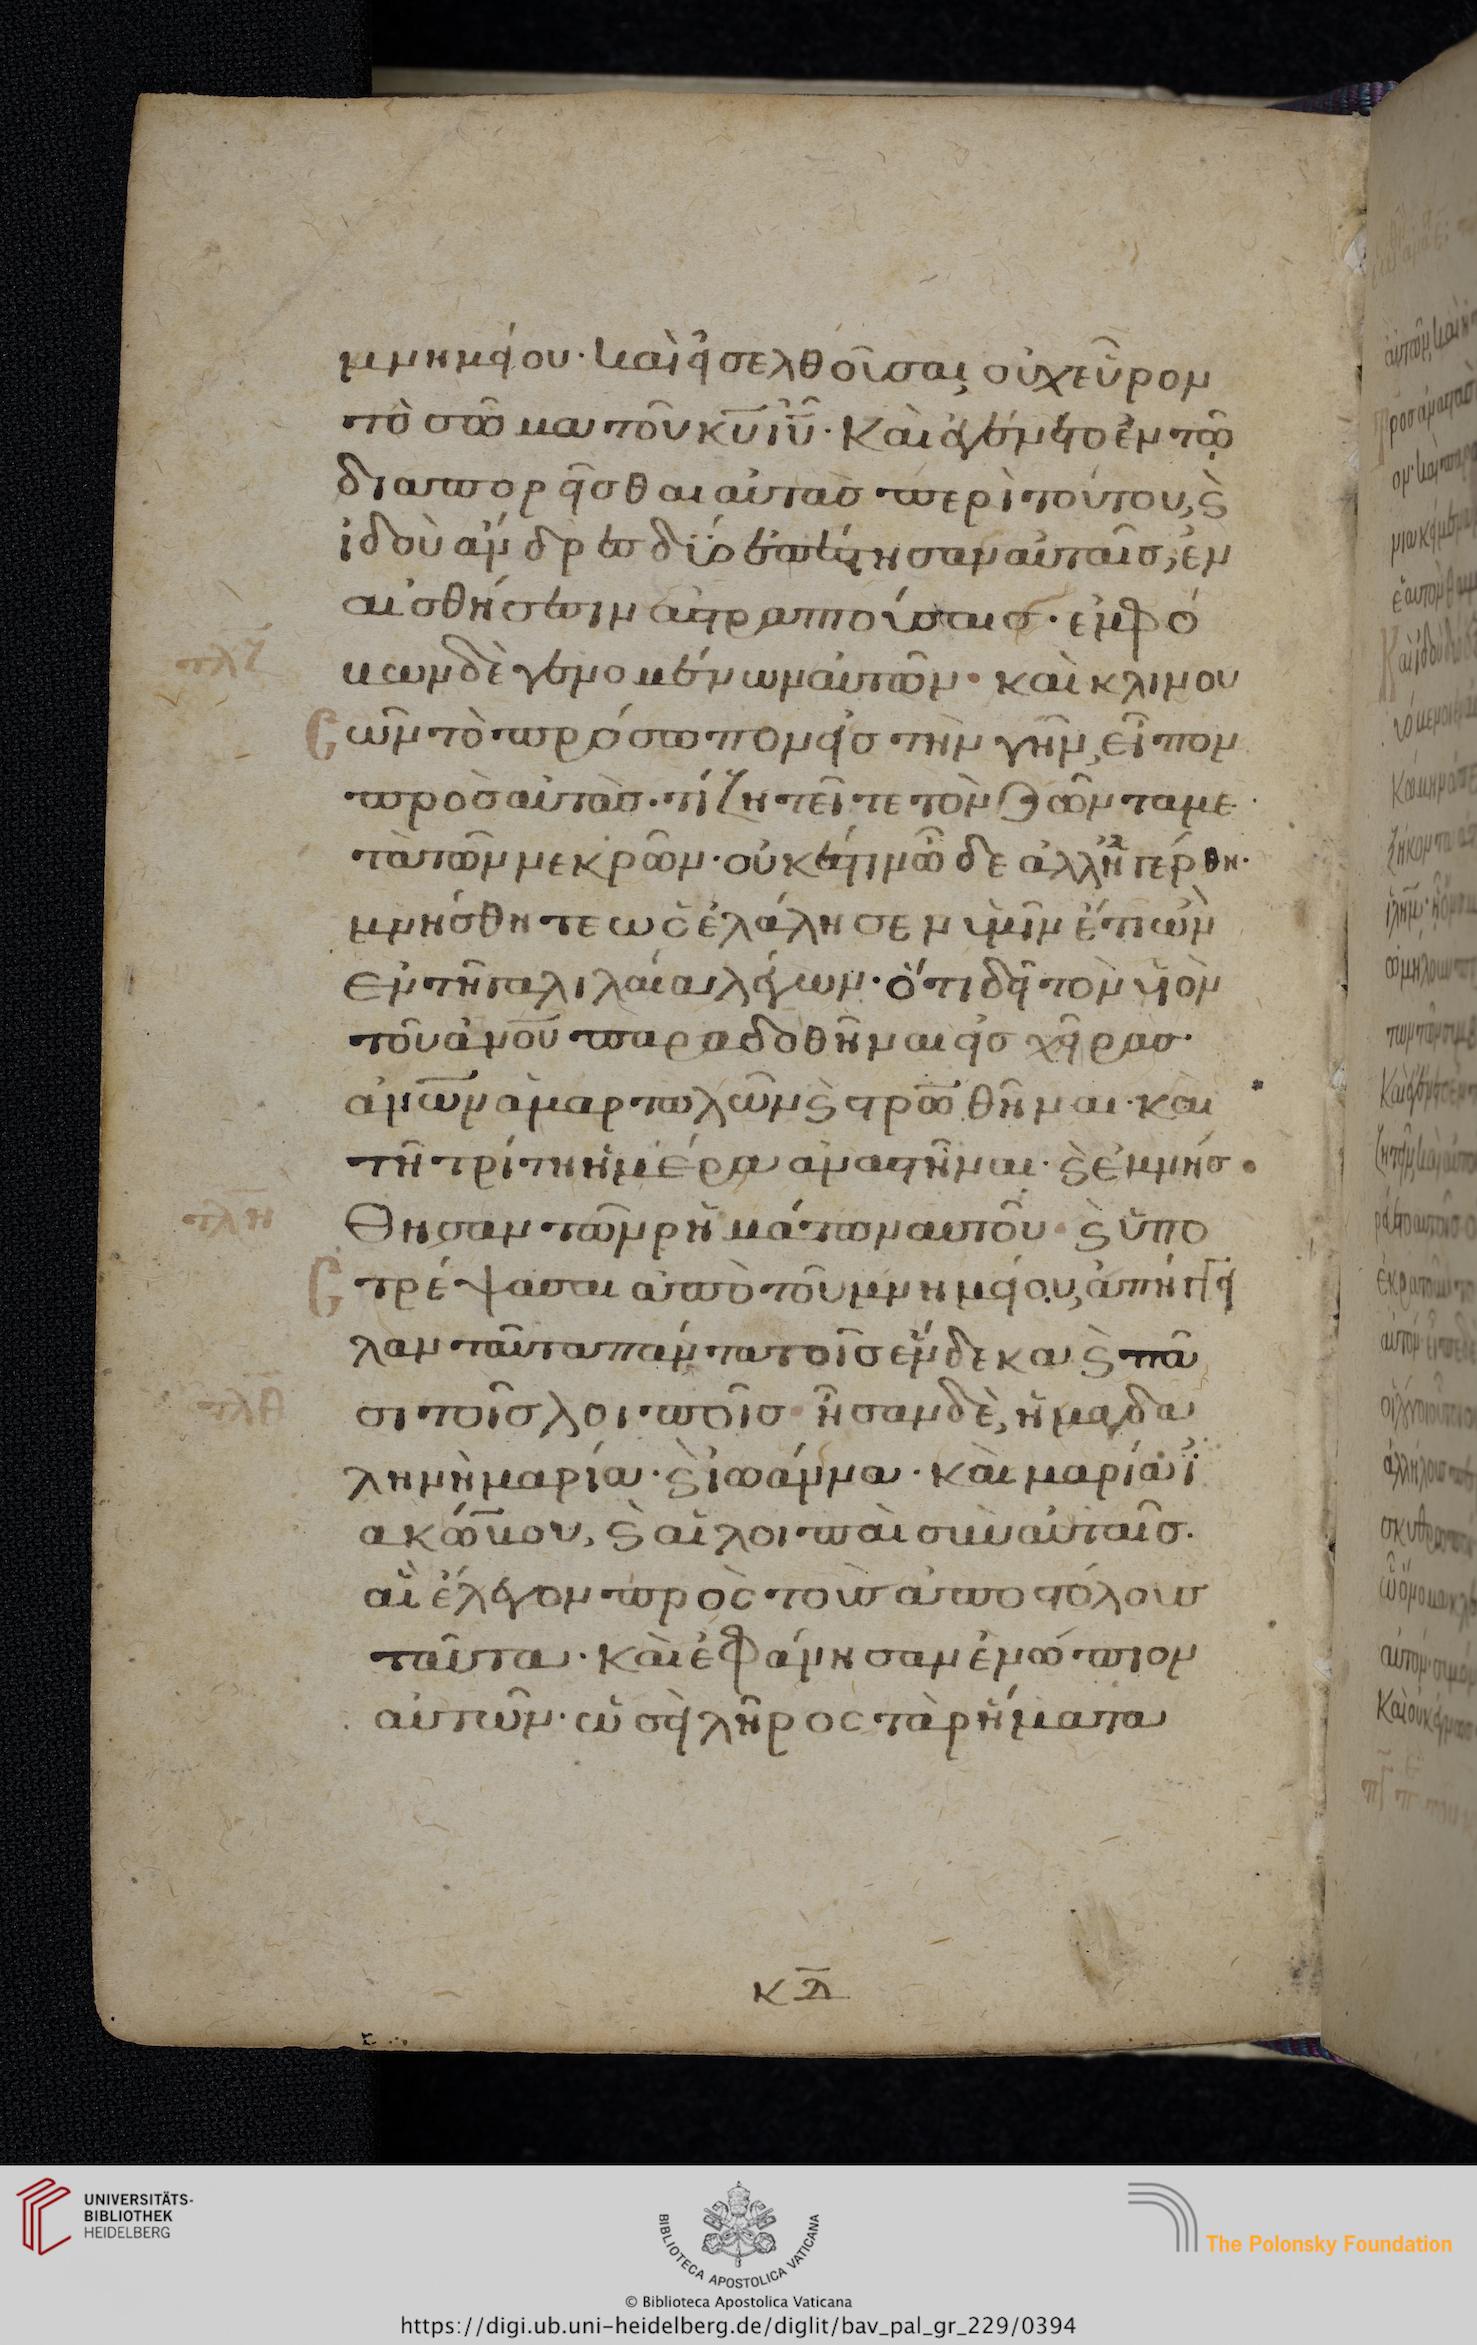 μνημείου· καὶ εἰσελθοῦσαι οὐχ εὗρον
τὸ σῶμα τοῦ κ̅υ̅ ι̅υ̅· Καὶ ἐγένετο ἐν τῶ
διαπορεῖσθαι αὐτὰς περὶ τούτου, ϗ
ἰδοὺ ἄνδρες δύο ἐπέστησαν αὐταῖς, ἐν
αἰσθήσεσιν ἀστραπτούσαις· ἐμφό
τλζ
βων δὲ γενομένων αὐτῶν· καὶ κλινου
σῶν τὸ πρόσωπον εἰς τὴν γῆν, εἶπον
πρὸς αὐτάς· τί ζητεῖτε τὸν ζῶντα με
τὰ τῶν νεκρῶν· οὐκ ἔστιν ὧδε ἀλλ' ἠγέρθη·
μνήσθητε ὡς ἐλάλησεν ὑμῖν ἔτι ὢν
ἐν τῆ γαλιλαία λέγων· ὅτι δεῖ τὸν υἱὸν
τοῦ α̅ν̅ο̅υ̅ παραδοθῆναι εἰς χεῖρας
α̅ν̅ω̅ν̅ ἁμαρτωλῶν ϗ στρωθῆναι· καὶ
τῆ τρίτη ἡμέρα ἀναστῆναι· ϗ ἐμνήσ
τλη
θησαν τῶν ῥημάτων αὐτοῦ· ϗ ὑπο
στρέψασαι ἀπὸ τοῦ μνημείου, ἀπήγγει
λαν ταῦτα πάντα τοῖς ἕνδεκα ϗ πᾶ
τλθ
σι τοῖς λοιποῖς· ἦσαν δὲ, ἡ μαγδα
ληνὴ μαρία· ϗ ἰωάννα· καὶ μαρία ἰ
ακώβου, ϗ αἱ λοιπαὶ σὺν αὐταῖς·
αἳ ἔλεγον πρὸς τοὺς ἀποστόλους
ταῦτα· καὶ ἐφάνησαν ἐνώπιον
αὐτῶν· ὡσεὶ λῆρος τὰ ῥήματα
κδ
UNIVERSITÄTS-
BIBLIOTHEK
HEIDELBERG
BIBLIOTECA APOSTOLICA VATICANA
The Polonsky Foundation
© Biblioteca Apostolica Vaticana
https://digi.ub.uni-heidelberg.de/diglit/bav_pal_gr_229/0394